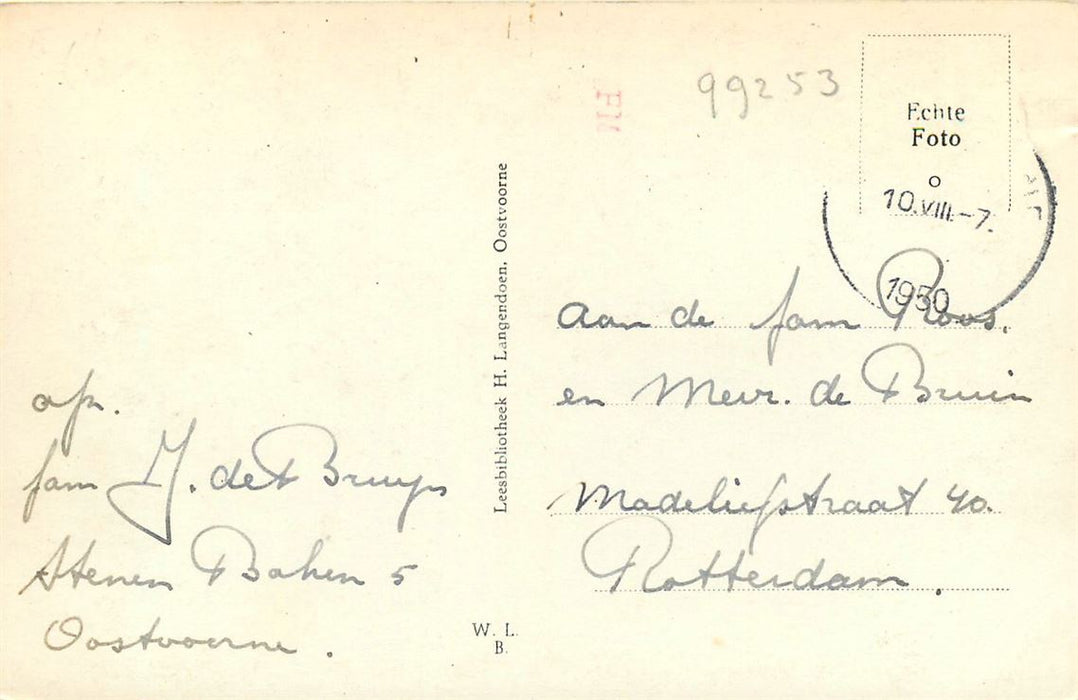 99253
Echte
Foto
10.VIII.-7.
1950
Leesbibliotheek H. Langendoen, Oostvoorne
Aan de fam Roos.
en Mevr. de Bruin
Madeliefstraat 40.
Rotterdam.
afz.
fam J. de Bruijn
Stenen Baken 5
Oostvoorne.
W. L.
B.